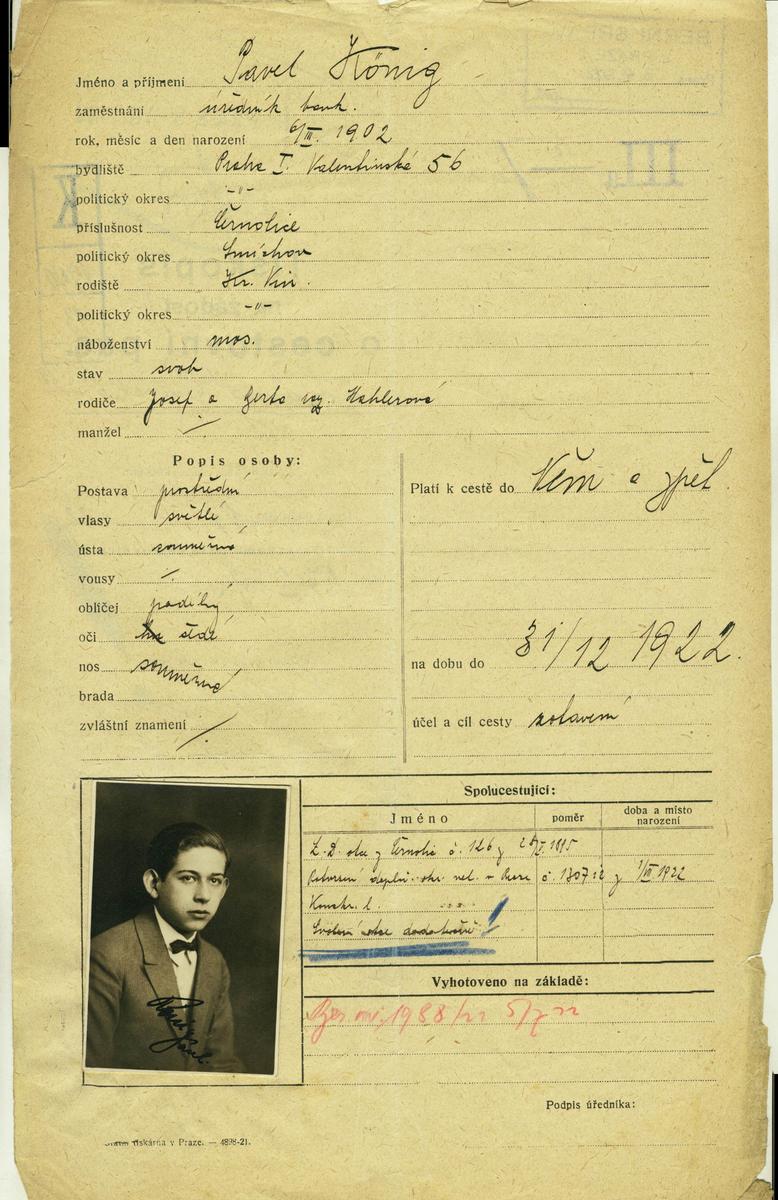 Jméno a příjmení Pavel König
zaměstnání úředník bank.
rok, měsíc a den narození 6/III. 1902
bydliště Praha I. Valentinská 56
politický okres -"-
příslušnost Černolice
politický okres Smíchov
rodiště Kr. Vin.
politický okres -"-
náboženství mos.
stav svob
rodiče Josef a Berta roz. Mahlerová
manžel /
Popis osoby:
Postava prostřední
vlasy světlé
ústa souměrná
vousy /
obličej podélný
oči šedé
nos souměrný
brada
zvláštní znamení /
Platí k cestě do Něm a zpět.
na dobu do 31/12 1922.
účel a cíl cesty zotavení
Spolucestující:
Jméno poměr doba a místo narození
L. D. obce z Černolic č. 126 z 1895
Potvrzení doplň. okr. vel. v č. z 1922
Svolení otce dodatečně!
Vyhotoveno na základě:
1988/22 5/7 22
Podpis úředníka:
tiskárna v Praze. — 4898-21.